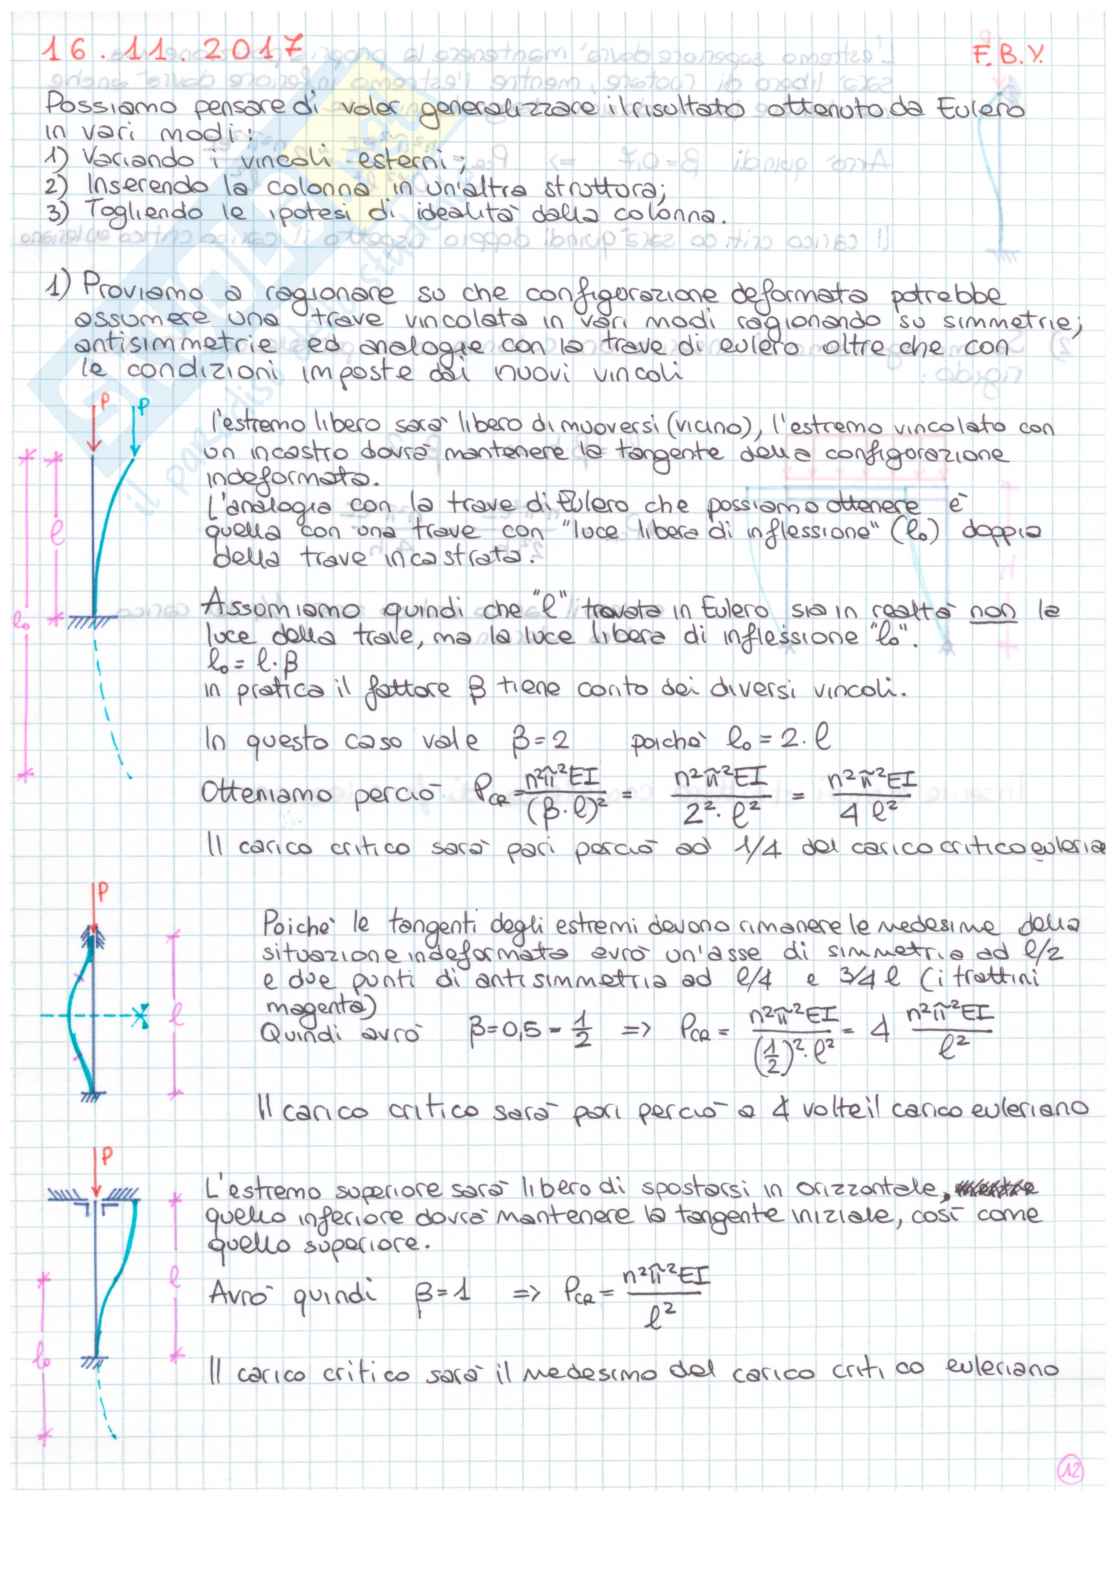 16.11.2017 F.B.Y.
Possiamo pensare di voler generalizzare il risultato ottenuto da Eulero
in vari modi:
1) Variando i vincoli esterni;
2) Inserendo la colonna in un'altra struttura;
3) Togliendo le ipotesi di idealità della colonna.
1) Proviamo a ragionare su che configurazione deformata potrebbe
assumere una trave vincolata in vari modi ragionando su simmetrie,
antisimmetrie ed analogie con la trave di eulero oltre che con
le condizioni imposte dai nuovi vincoli
P P
l'estremo libero sarà libero di muoversi (vicino), l'estremo vincolato con
un incastro dovrà mantenere la tangente della configurazione
indeformata.
L'analogia con la trave di Eulero che possiamo ottenere è
quella con una trave con "luce libera di inflessione" (l₀) doppia
della trave incastrata.
l
l₀
Assumiamo quindi che "l" trovata in Eulero sia in realtà non la
luce della trave, ma la luce libera di inflessione "l₀".
l₀ = l·β
in pratica il fattore β tiene conto dei diversi vincoli.
In questo caso vale β=2 poiché l₀ = 2·l
Otteniamo perciò P_CR = n²π²EI/(β·l)² = n²π²EI/2²·l² = n²π²EI/4l²
Il carico critico sarà pari perciò ad 1/4 del carico critico euleria
P
Poiché le tangenti degli estremi devono rimanere le medesime della
situazione indeformata avrò un'asse di simmetria ad l/2
e due punti di antisimmetria ad l/4 e 3/4 l (i trattini
magenta)
l
Quindi avrò β=0,5=1/2 => P_CR = n²π²EI/(1/2)²·l² = 4 n²π²EI/l²
Il carico critico sarà pari perciò a 4 volte il carico euleriano
P
L'estremo superiore sarà libero di spostarsi in orizzontale,
quello inferiore dovrà mantenere la tangente iniziale, così come
quello superiore.
l
l₀
Avrò quindi β=1 => P_CR = n²π²EI/l²
Il carico critico sarà il medesimo del carico critico euleriano
12